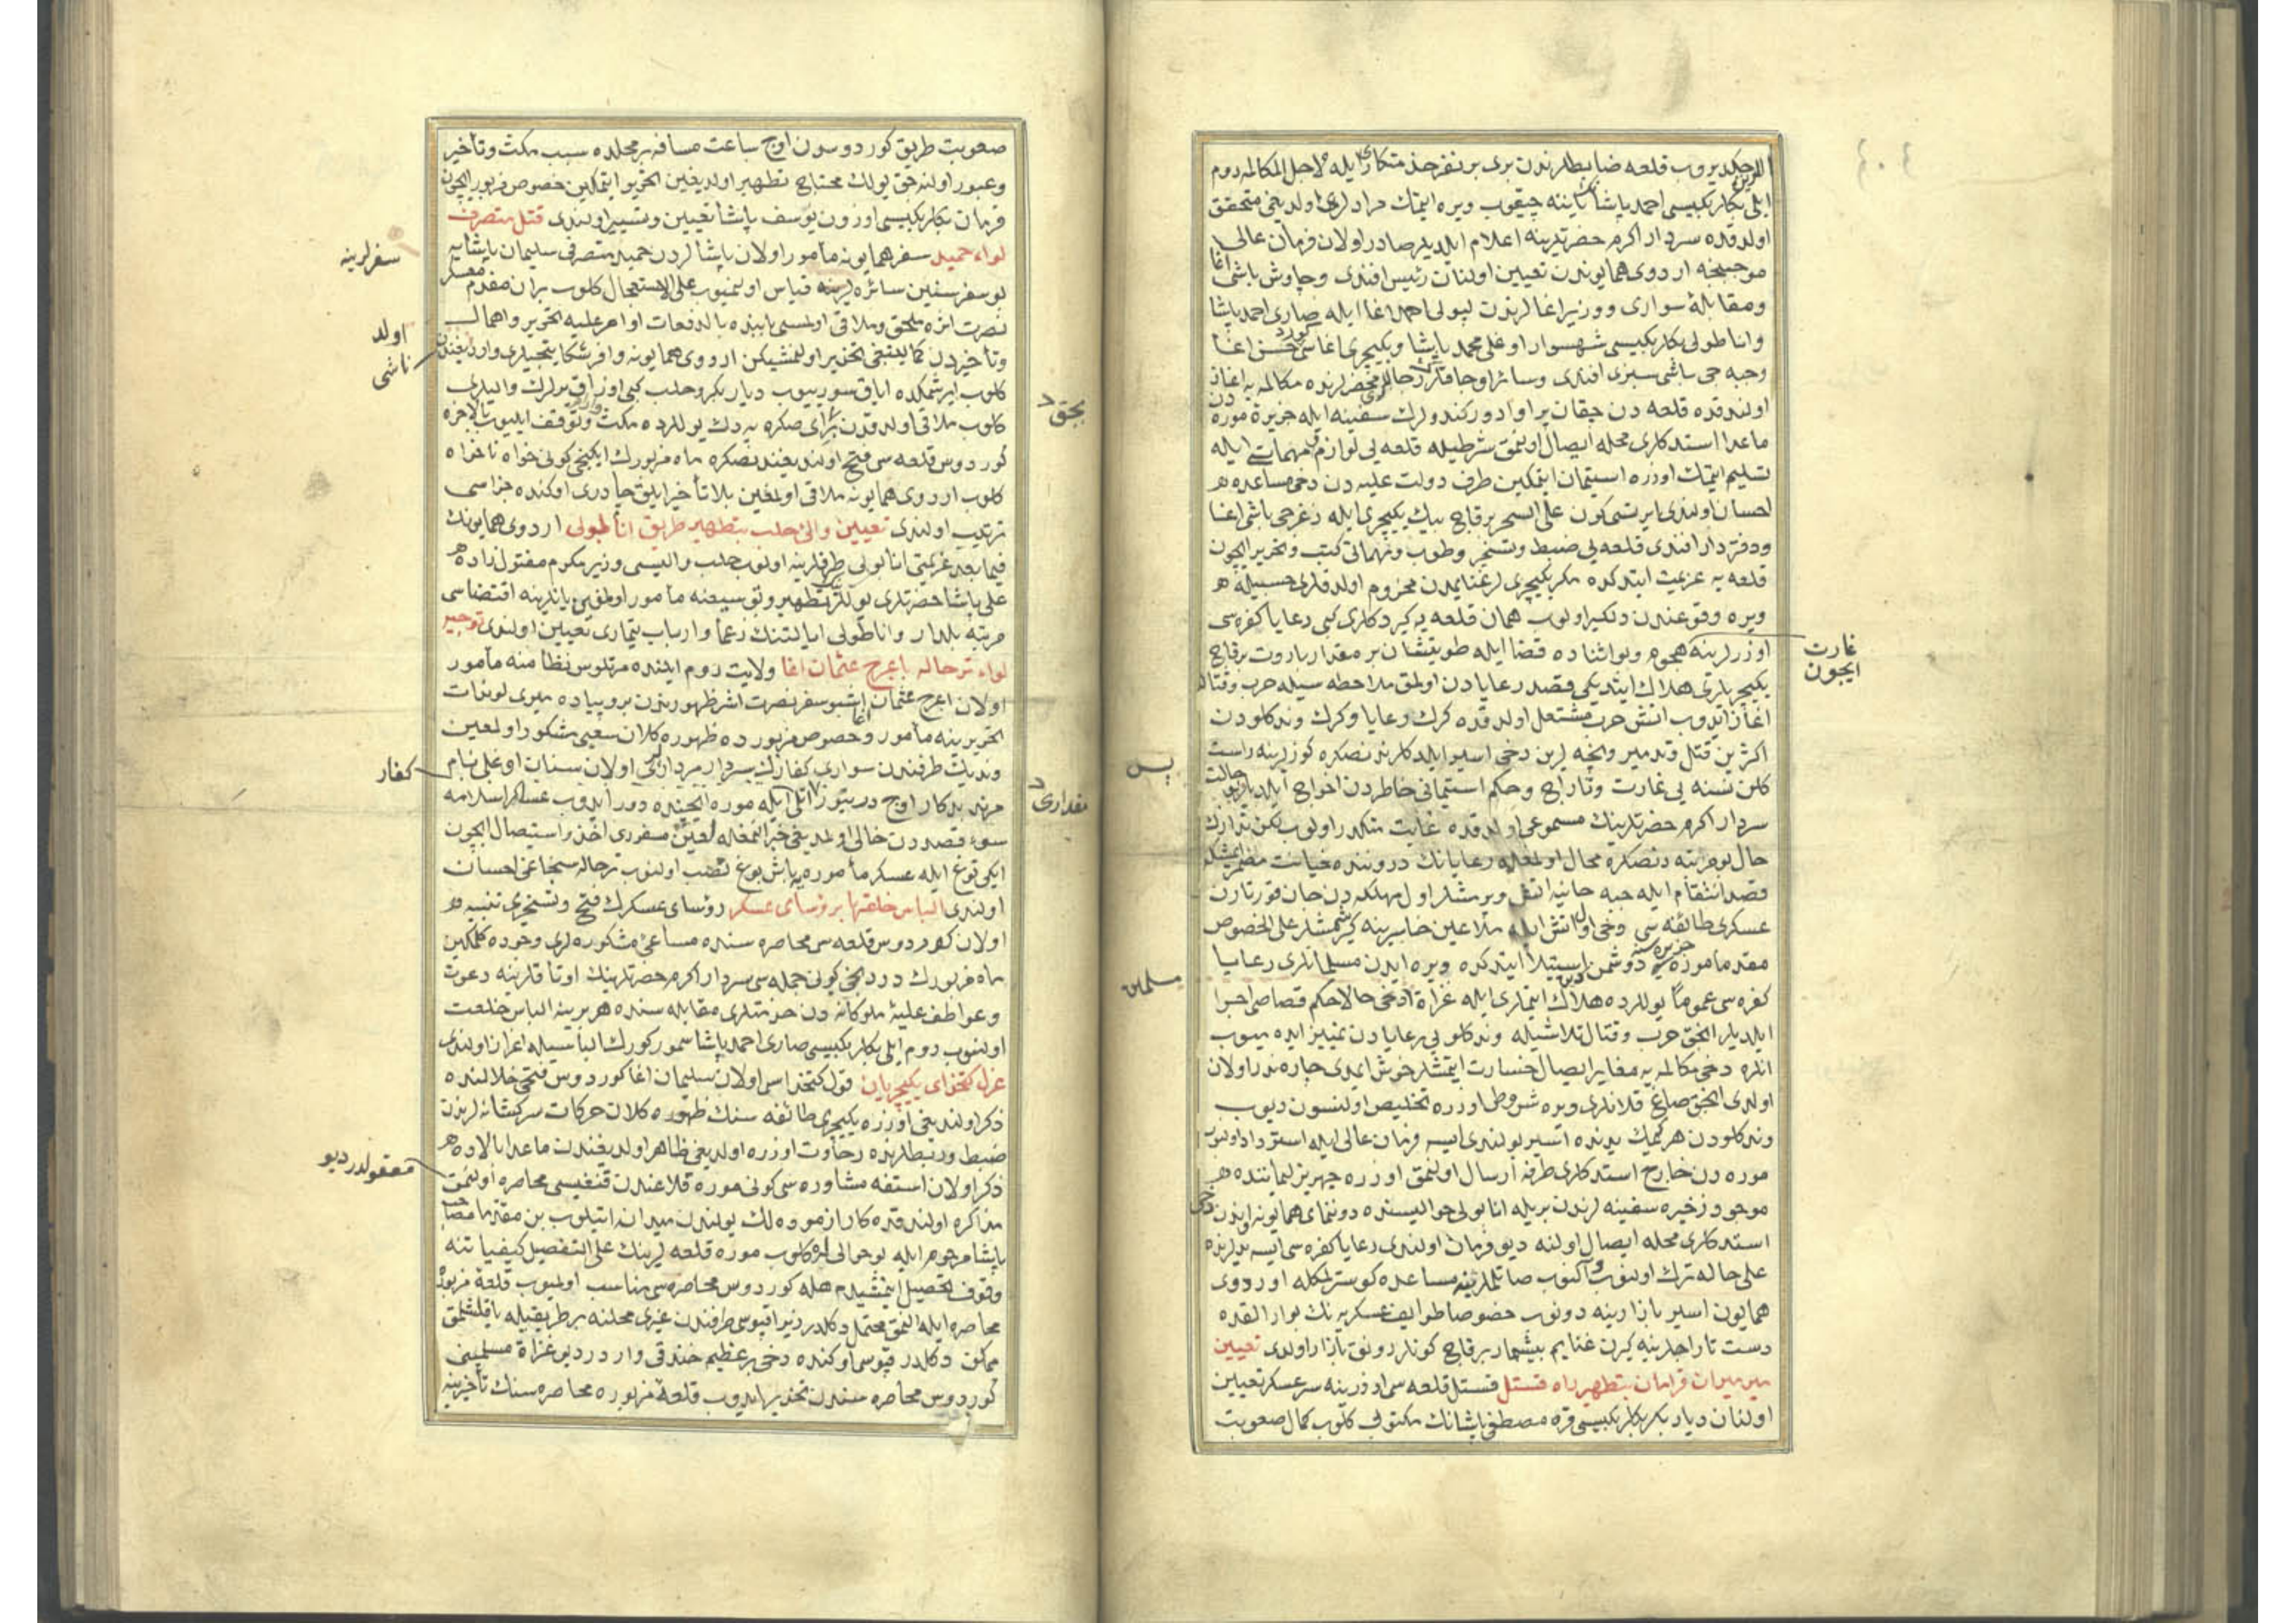 چكدیروب قلعه ضابطلرندن بری بر نفر خدمتكاری ایله لاجل المكالمه روم
ایلی بكلربكیسی احمد پاشانك یاننه چیقوب ویره ایتمك مرادلری اولدیغی متحقق
اولدقده سردار اكرم حضرتلرینه اعلام ایلدیلر صادر اولان فرمان عالی
موجبنجه اردوی همایوندن تعیین اولنان رئیس افندی وچاوش باشی اغا
ومقابلهٔ سواری ووزیر اغالرندن لیولی احمد اغا ایله صاری احمد پاشا
واناطولی بكلربكیسی شهسوار اوغلی محمد پاشا ویكیچری اغاسی حسن اغا
وجبه جی باشی سبزی افندی وسائر اوجاقلر رجالی محضرلرنده مكالمه یه اغاز
اولندقده قلعه دن چیقان پراوادور كندولرك سفینه ایله جزیرهٔ موره دن
ماعدا استدكلری محله ایصال اولنمق شرطیله قلعه یی لوازم ومهمات ایله
تسلیم ایتمك اوزره استیمان ایتمكین طرف دولت علیه دن دخی مساعده
احسان اولندی ایرتسی كون علی السحر برقاچ بیك یكیچری ایله زغرجی باشی اغا
ودفتردار افندی قلعه یی ضبط وتسخیر وطوب ومهماتی كتب وتحریر ایچون
قلعه یه عزیمت ایتدكده مكر یكیچریلر غنایمدن محروم اولدقلری حسبیله
ویره وقوعندن دلكیر اولوب همان قلعه یه كیردكلری كبی رعایا كفره سی
اوزرلرینه غارت ایچون هجوم وبو اثناده قضا ایله طوتیشان بر مقدار باروت برقاچ
یكیچریلری هلاك ایتدیكی قصد رعایادن اولمق ملاحظه سیله حرب وقتاله
اغاز ایدوب اتش حرب مشتعل اولدقده كرك رعایا وكرك وندكلودن
اكثرین قتل وتدمیر ونیچه لرین دخی اسیر ایلدكلرندنصكره كوزلرینه راست
كلن نسنه یی غارت وتاراج وحكم استیمانی خاطردن اخراج ایلدیلر بو حالت
سردار اكرم حضرتلرینك مسموعی اولدقده غایت متكدر اولوب لكن تدارك
حال بو مرتبه دنصكره محال اولمغله رعایانك دروننده خیانت مضمر ایمشكه
قصد انتقام ایله جبه خانیه اتش ویرمشلر اول مهلكه دن جان قورتارن
عسكری طائفه سی دخی اول اتش ایله ملاعین خاسرینه كیرشمشلر علی الخصوص
مقدما موره جزیره سنه دوشمن استیلا ایتدكده ویره ایدن مسلمانلری رعایا
كفره سی عموما یوللرده هلاك ایتملری ایله غزاة دخی حالا حكم قصاصی اجرا
ایلدیلر انجق حرب وقتال تلاشیله وندكلویی رعایادن تمییز ایده میوب
انلره دخی مكالمه یه مغایر ایصال خسارت ایتمشلر خوش ایمدی چاره ندر اولان
اولدی انجق صاغ قلانلری ویره شروطی اوزره تخلیص اولنسون دیوب
وندكلودن هر كیمك یدنده اسیر بولندی ایسه فرمان عالی ایله استرداد اولنوب
موره دن خارج استدكلری طرفه ارسال اولنمق اوزره جهریز لیماننده
موجود زخیره سفینه لرندن بریله انابولی حوالیسنده دوننمای همایونه اندن دخی
استدكلری محله ایصال اولنه دیو فرمان اولندی رعایا كفره سی ایسه یدلرنده
علی حاله ترك اولنوب والنوب صاتملرینه مساعده كوسترلمكله اوردوی
همایون اسیر بازارینه دونوب خصوصا طوایف عسكریه نك بو ارالقده
دست تاراجلرینه كیرن غنایم بیشمار برقاچ كونلر رونق بازار اولدی تعیین
میرمیران قرامان بتطهیر راه قستل قستل قلعه سی اوزرینه سرعسكر تعیین
اولنان دیاربكر بكلربكیسی قره مصطفی پاشانك مكتوبی كلوب كمال صعوبت
غارت
ایچون
پس
مسلمین
صعوبت طریق كوردوسدن اوچ ساعت مسافه بر محلده سبب مكث وتأخیر
وعبور اولنه جق یولك محتاج تطهیر اولدیغین تحریر ایتمكین خصوص مزبور ایچون
قرمان بكلربكیسی اوزون یوسف پاشا تعیین وتسییر اولندی قتل متصرف
لواء حمید سفر همایونه مأمور اولان پاشالردن حمید متصرفی سلیمان پاشایه
بو سفر سنین سائره سفرلرینه قیاس اولنمیوب علی الاستعجال كلوب بر ان مقدم معسكر
نصرت اثره ملحق وملاقی اولمسی بابنده بالدفعات اوامر علیه تحریر واهمال
وتأخیردن كما ینبغی تحذیر اولنمشیكن اردوی همایونه وافر شكایتجیلری وارد اولدیغندن ناشی
كلوب ایرشمكده ایاق سورییوب دیاربكر وحلب كبی اوزاق یرلرك والیلری
كلوب ملاقی اولدقدن برای صكره یه دك یوللرده مكث وتوقف ایلیوب بالاخره
كوردوس قلعه سی فتح اولندیغندنصكره ماه مزبورك ایكنجی كونی خواه ناخواه
كلوب اردوی همایونه ملاقی اولمغین بلا تأخیر ایلق چادری اوكنده جزاسی
ترتیب اولندی تعیین والئ حلب بتطهیر طریق انابولی اردوی همایونك
فیما بعد عزیمتی انابولی طرفلرینه اولنوب حلب والیسی وزیر مكرم مقتول زاده
علی پاشا حضرتلری یوللرك تطهیر وتوسیعنه مأمور اولمغین یانلرینه اقتضاسی
مرتبه بلدار واناطولی ایالتنك زعما وارباب تیماری تعیین اولندی توجیه
لواء ترحاله باعرج عثمان اغا ولایت روم ایلنده مرتلوس نظامنه مأمور
اولان اعرج عثمان اغا اشبو سفر نصرت اثر ظهورندن برو پیاده میری لوندات
تحریرینه مأمور وخصوص مزبورده ظهوره كلان سعیی مشكور اولمغین
وندیك طرفندن سواری كفارك سردار مرداری اولان سنان اوغلی نام
مرتد یدكار اوچ دربیوز اتلی ایله موره ایچنده دور ایدوب عساكر اسلامه
سوء قصددن خالی اولمدیغی خبر النمغله لعین مسفوری اخذ واستیصال ایچون
ایكی توغ ایله عسكر مأموره یه باش بوغ نصب اولنوب ترحاله سنجاغی احسان
اولندی الباس خلعتها بر رؤسای عسكر رؤسای عسكرك فتح وتسخیری تنبیه
اولان كوردوس قلعه سی محاصره سنده مساعئ مشكوره لری وجوده كلمكین
ماه مزبورك دردنجی كونی جمله سی سردار اكرم حضرتلرینك اوتاقلرینه دعوت
وعواطف علیهٔ ملوكانه دن خدمتلری مقابله سنده هر برینه الباس خلعت
اولنوب روم ایلی بكلربكیسی صاری احمد پاشا سمور كورك الباسیله اعزاز اولندی
عزل كتخدای یكیچریان قول كتخداسی اولان سلیمان اغا كوردوس فتحی خلالنده
ذكر اولندیغی اوزره یكیچری طائفه سنك ظهوره كلان حركات سركشانه لرندن
ضبط وربطلرنده رخاوت اوزره اولدیغی ظاهر اولدیغندن ماعدا بالاده
ذكر اولان استفه مشاوره سی كونی موره قلاعندن قنغیسی محاصره اولنمق
مذاكره اولندقده كارازموده لك یولندن میدانه اتیلوب بن مقدما مصاحب
پاشا مرحوم ایله بو حوالی یه كلوب موره قلعه لرینك علی التفصیل كیفیاتنه
وقوف تحصیل ایتمشیدم هله كوردوس محاصره سی مناسب اولمیوب قلعهٔ مزبوره
محاصره ایله النمق محتمل دكلدر زیرا قپوسی طرفندن غیری محلنه بر طریقیله یاقلشلمق
ممكن دكلدر قپوسی اوكنده دخی بر عظیم خندقی واردر دیو غزاة مسلمینی
كوردوس محاصره سندن تحذیر ایدوب قلعهٔ مزبوره محاصره سنك تأخیرینه
سفرلرینه
اولد
ناشی
بجق
كفار
مقداری
معقولدر دیو